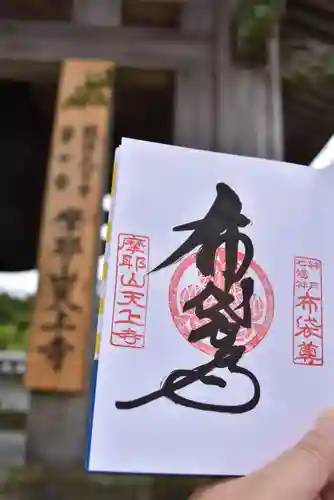 神戸
七福神
布袋尊
布袋尊
摩耶山天上寺
摩耶山天上寺